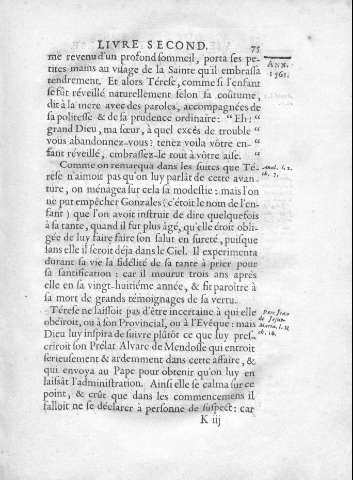 LIVRE SECOND. 75
me revenu d'un profond sommeil, porta ses pe-
tites mains au visage de la Sainte qu'il embrassa
tendrement. Et alors Térese, comme si l'enfant
se fût réveillé naturellement selon sa coûtume,
dit à la mere avec des paroles, accompagnées de
sa politesse & de sa prudence ordinaire: “Eh:
grand Dieu, ma sœur, à quel excés de trouble
vous abandonnez-vous: tenez voila vôtre en-
fant réveillé, embrassez-le tout à vôtre aise.
Comme on remarqua dans les suites que Té-
rese n'aimoit pas qu'on luy parlât de cette avan-
ture, on ménagea sur cela sa modestie: mais l'on
ne put empêcher Gonzales (c'étoit le nom de l'en-
fant) que l'on avoit instruit de dire quelquefois
à sa tante, quand il fut plus âgé, qu'elle étoit obli-
gée de luy faire faire son salut en sureté, puisque
sans elle il seroit déja dans le Ciel. Il experimenta
durant sa vie la fidélité de sa tante à prier pour
sa santification: car il mourut trois ans aprés
elle en sa vingt-huitiéme année, & fit paroître à
sa mort de grands témoignages de sa vertu.
Térese ne laissoit pas d'être incertaine à qui elle
obéïroit, ou à son Provincial, ou à l'Evêque: mais
Dieu luy inspira de suivre plûtôt ce que luy pres-
criroit son Prélat Alvare de Mendosse qui entroit
serieusement & ardemment dans cette affaire, &
qui envoya au Pape pour obtenir qu'on luy en
laissât l'administration. Ainsi elle se calma sur ce
point, & crût que dans les commencemens il
falloit ne se déclarer à personne de suspect: car
K iij
ANN.
1561.
ch. 7.
Pere Jean
de Jesus-
Maria. l. 2.
ch. 16.